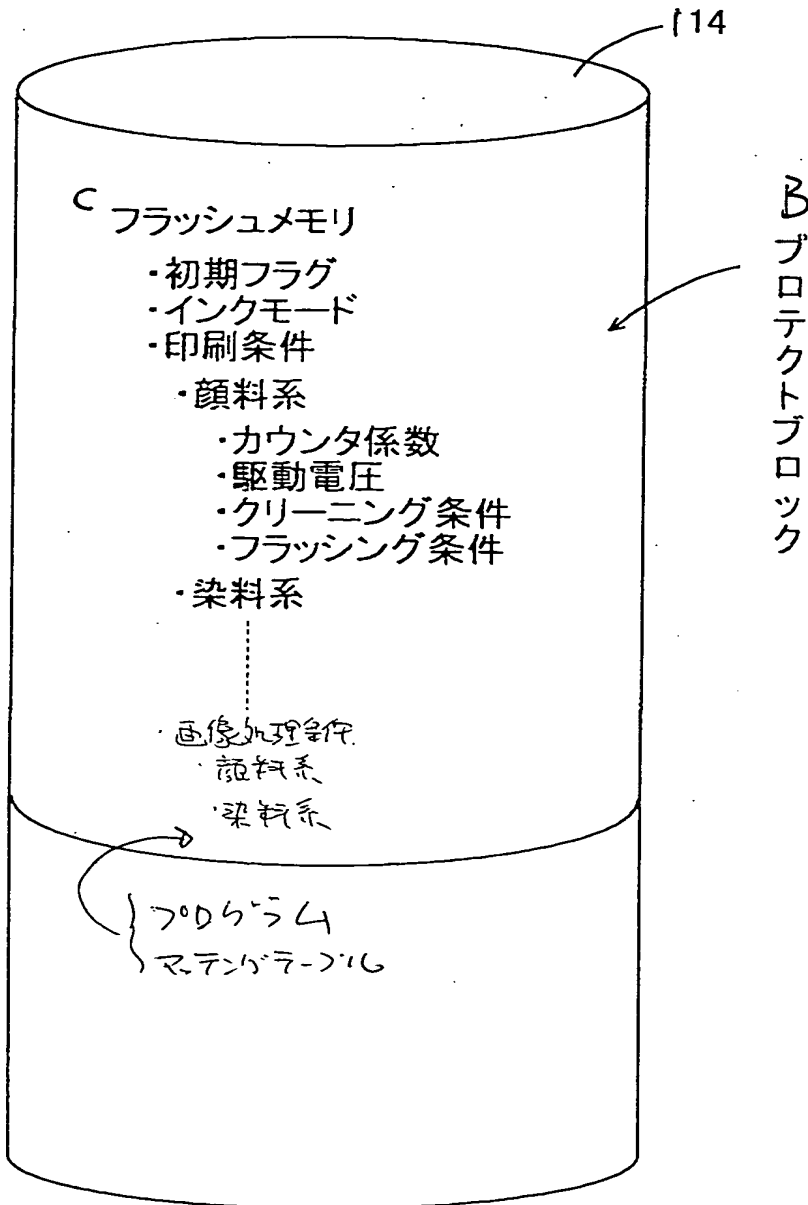 114
B ブロテクトブロック
C フラッシュメモリ
・初期フラグ
・インクモード
・印刷条件
・顔料系
・カウンタ係数
・駆動電圧
・クリーニング条件
・フラッシング条件
・染料系
・画像処理条件
・顔料系
・染料系
プログラム